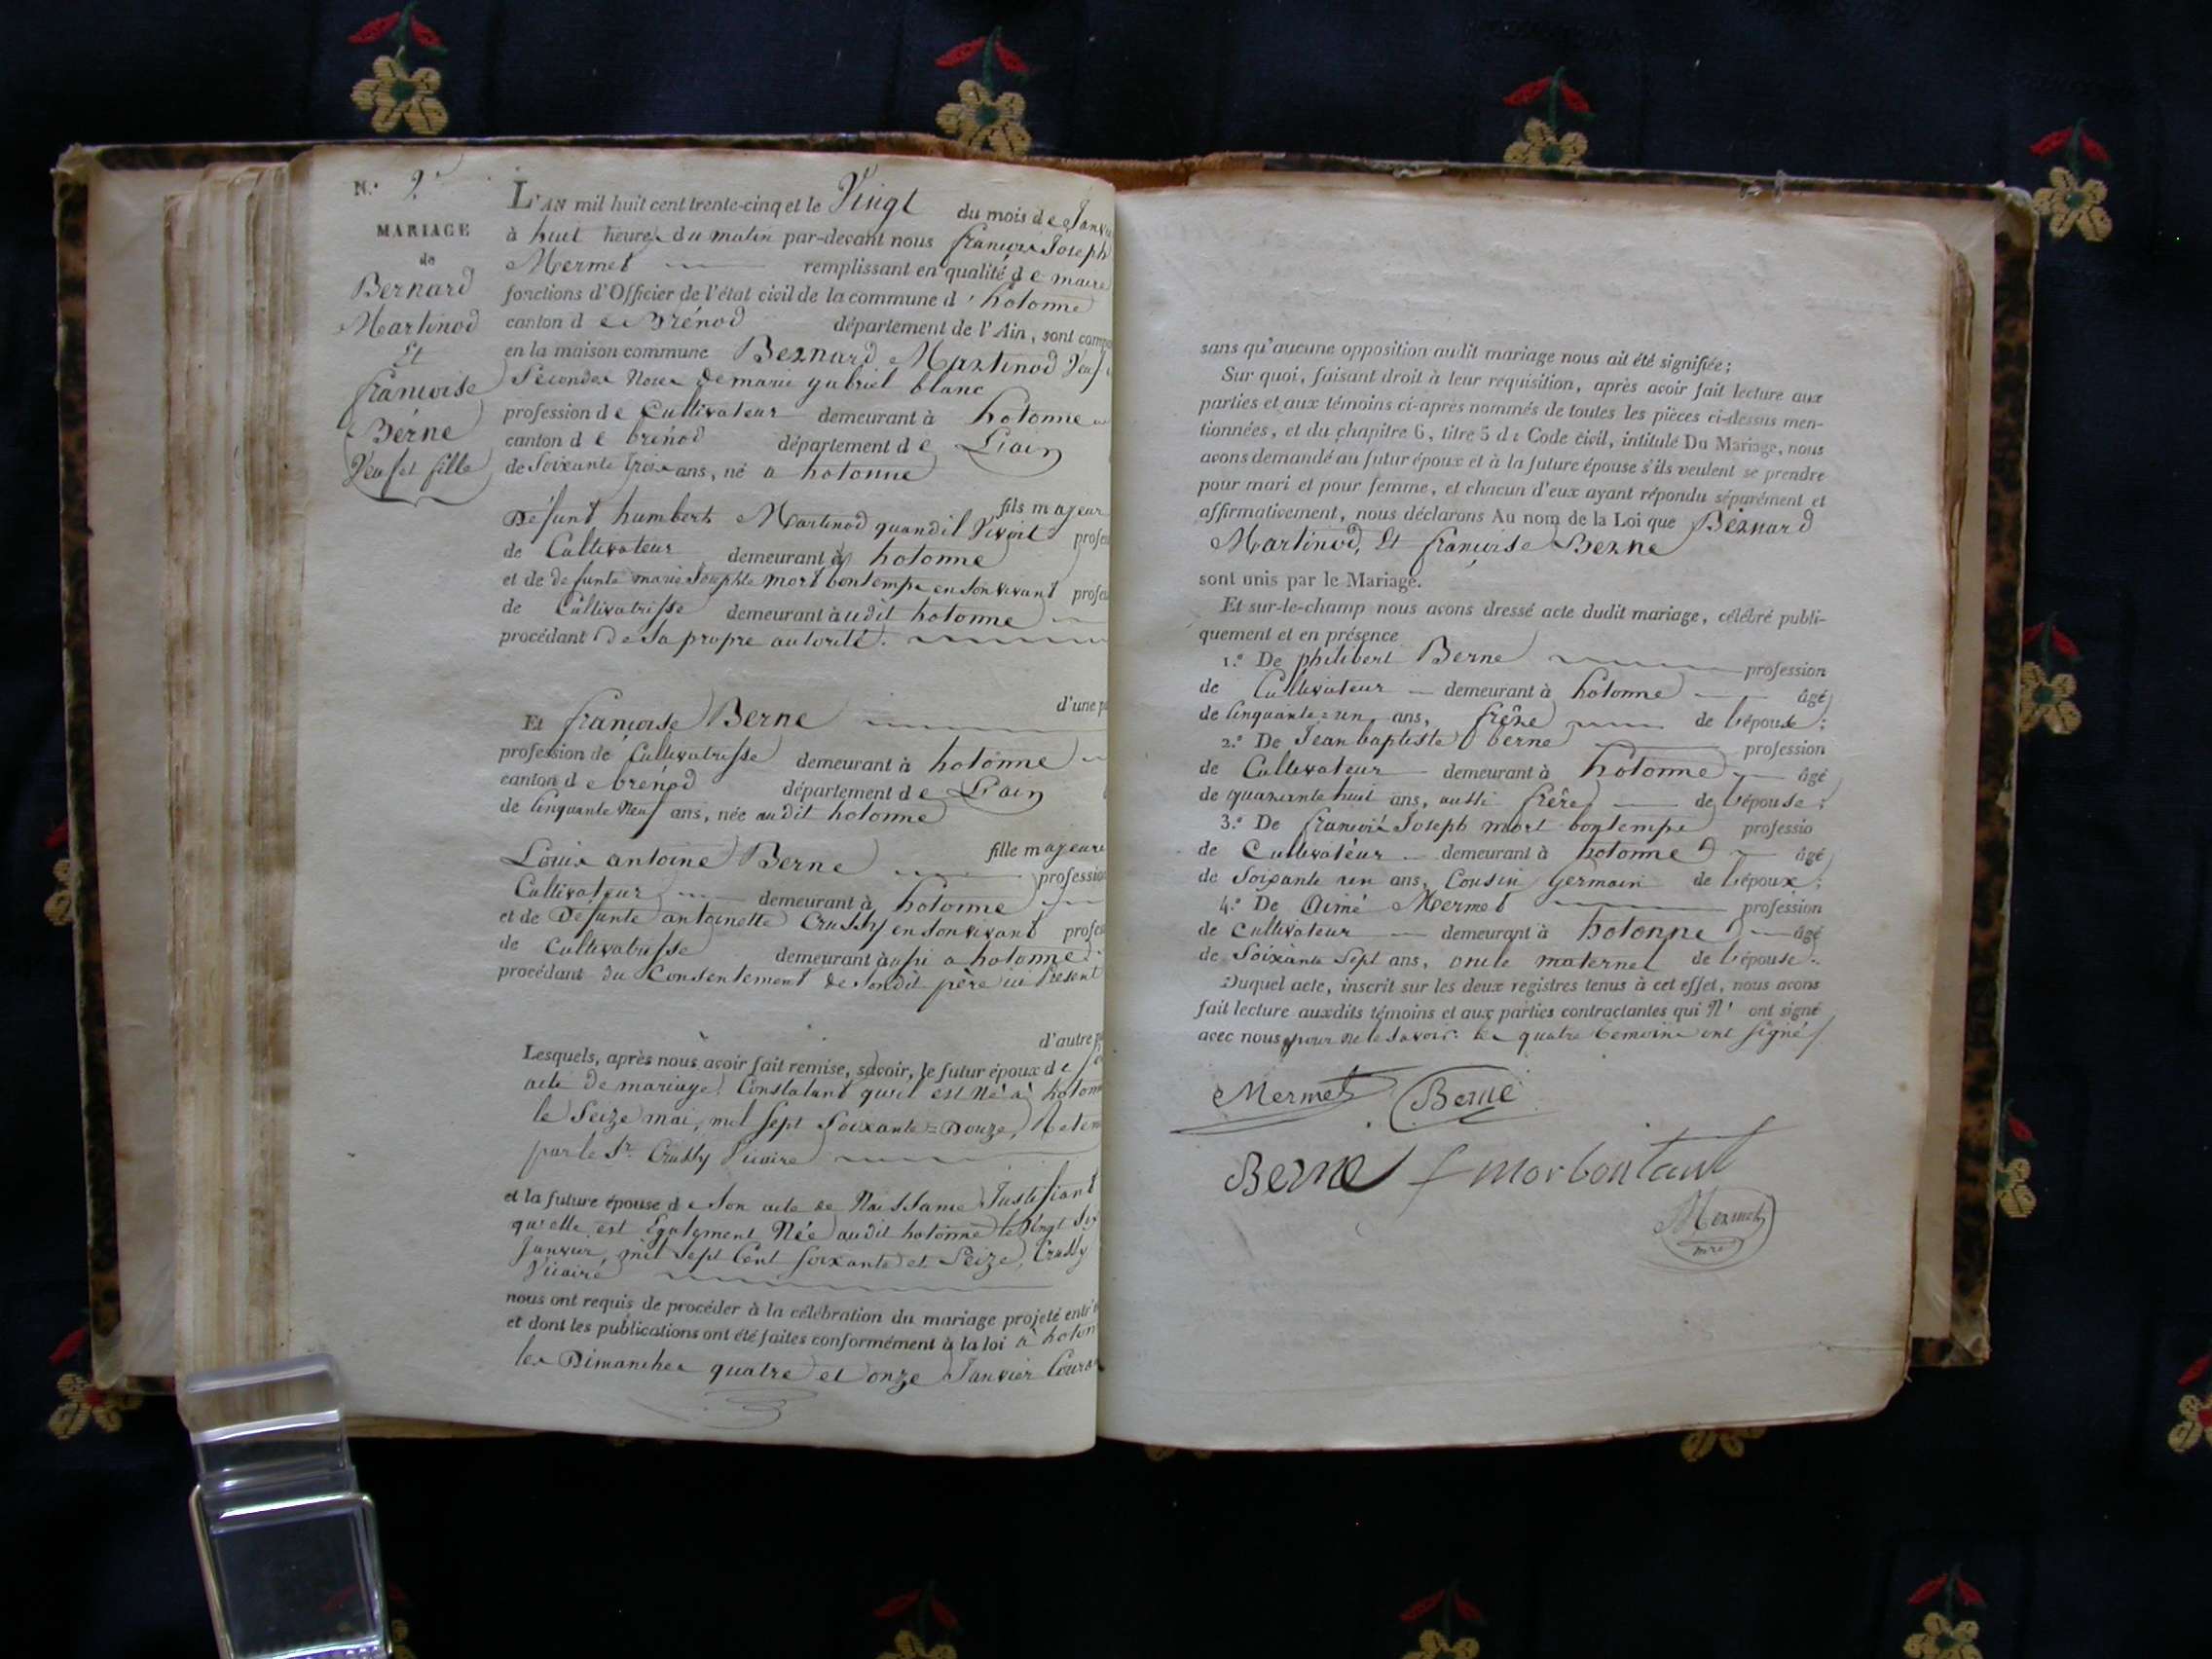 N.° 2
MARIAGE
de
Bernard
Martinod
Et
françoise
Berne
Veuf et fille
L'AN mil huit cent trente-cinq et le Vingt du mois de Janvi
à huit heures du matin par-devant nous françois Joseph
Mermet remplissant en qualité de maire
fonctions d'Officier de l'état civil de la commune d'hotonne
canton de Brénod département de l'Ain, sont comp
en la maison commune Bernard Martinod Veuf
Secondes Noces de marie gabriel blanc
profession de Cultivateur demeurant à hotonne
canton de brénod département de L'ain
de Soixante trois ans, né a hotonne
fils majeur
Défunt humbert Martinod quand il Vivoit profes
de Cultivateur demeurant à hotonne
et de defunte marie Josephte mort bontemps en son vivant profes
de Cultivatrisse demeurant audit hotonne
procédant de Sa propre autorité.
d'une p
Et françoise Berne
profession de Cultivatrisse demeurant à hotonne
canton de brénod département de L'ain
de Cinquante Neuf ans, née audit hotonne
fille majeure
Louis antoine Berne profession
Cultivateur demeurant à hotonne
et de Defunte antoinette Crussy en son vivant profes
de Cultivatrisse demeurant aussi a hotonne
procédant du Consentement de Sondit père ici Present
d'autre p
Lesquels, après nous avoir fait remise, savoir, le futur époux de
acte de mariage Constatant qu'il est Né à hoton
le Seize mai, mil Sept Soixante=Douze,
par le Sr. Crussy Vicaire
et la future épouse de Son acte de Naissance Justifiant
qu'elle est Egalement Née audit hotonne le Vingt Six
Janvier, mil Sept Cent Soixante et Seize, Crussy
Vicaire
nous ont requis de procéder à la célébration du mariage projeté entr'e
et dont les publications ont été faites conformément à la loi à hoton
les Dimanches quatre et onze Janvier Couran
sans qu'aucune opposition audit mariage nous ait été signifiée;
Sur quoi, faisant droit à leur réquisition, après avoir fait lecture aux
parties et aux témoins ci-après nommés de toutes les pièces ci-dessus men-
tionnées, et du chapitre 6, titre 5 du Code civil, intitulé Du Mariage, nous
avons demandé au futur époux et à la future épouse s'ils veulent se prendre
pour mari et pour femme, et chacun d'eux ayant répondu séparément et
affirmativement, nous déclarons Au nom de la Loi que Bernard
Martinod, Et françoise Berne
sont unis par le Mariage.
Et sur-le-champ nous avons dressé acte dudit mariage, célébré publi-
quement et en présence
1.° De philibert Berne profession
de Cultivateur demeurant à hotonne âgé
de Cinquante=un ans, frère de l'épouse;
2.° De Jean baptiste berne profession
de Cultivateur demeurant à hotonne âgé
de quarante huit ans, aussi frère de l'épouse;
3.° De françois Joseph mort bontemps professio
de Cultivateur demeurant à hotonne âgé
de Soixante un ans, Cousin germain de l'époux;
4.° De Aimé Mermet profession
de Cultivateur demeurant à hotonne âgé
de Soixante Sept ans, oncle maternel de l'épouse.
Duquel acte, inscrit sur les deux registres tenus à cet effet, nous avons
fait lecture auxdits témoins et aux parties contractantes qui N' ont signé
avec nous pour ne le Savoir. les quatre temoins ont signé
Mermet Berne
Berne f morbontant
Mermet
mre